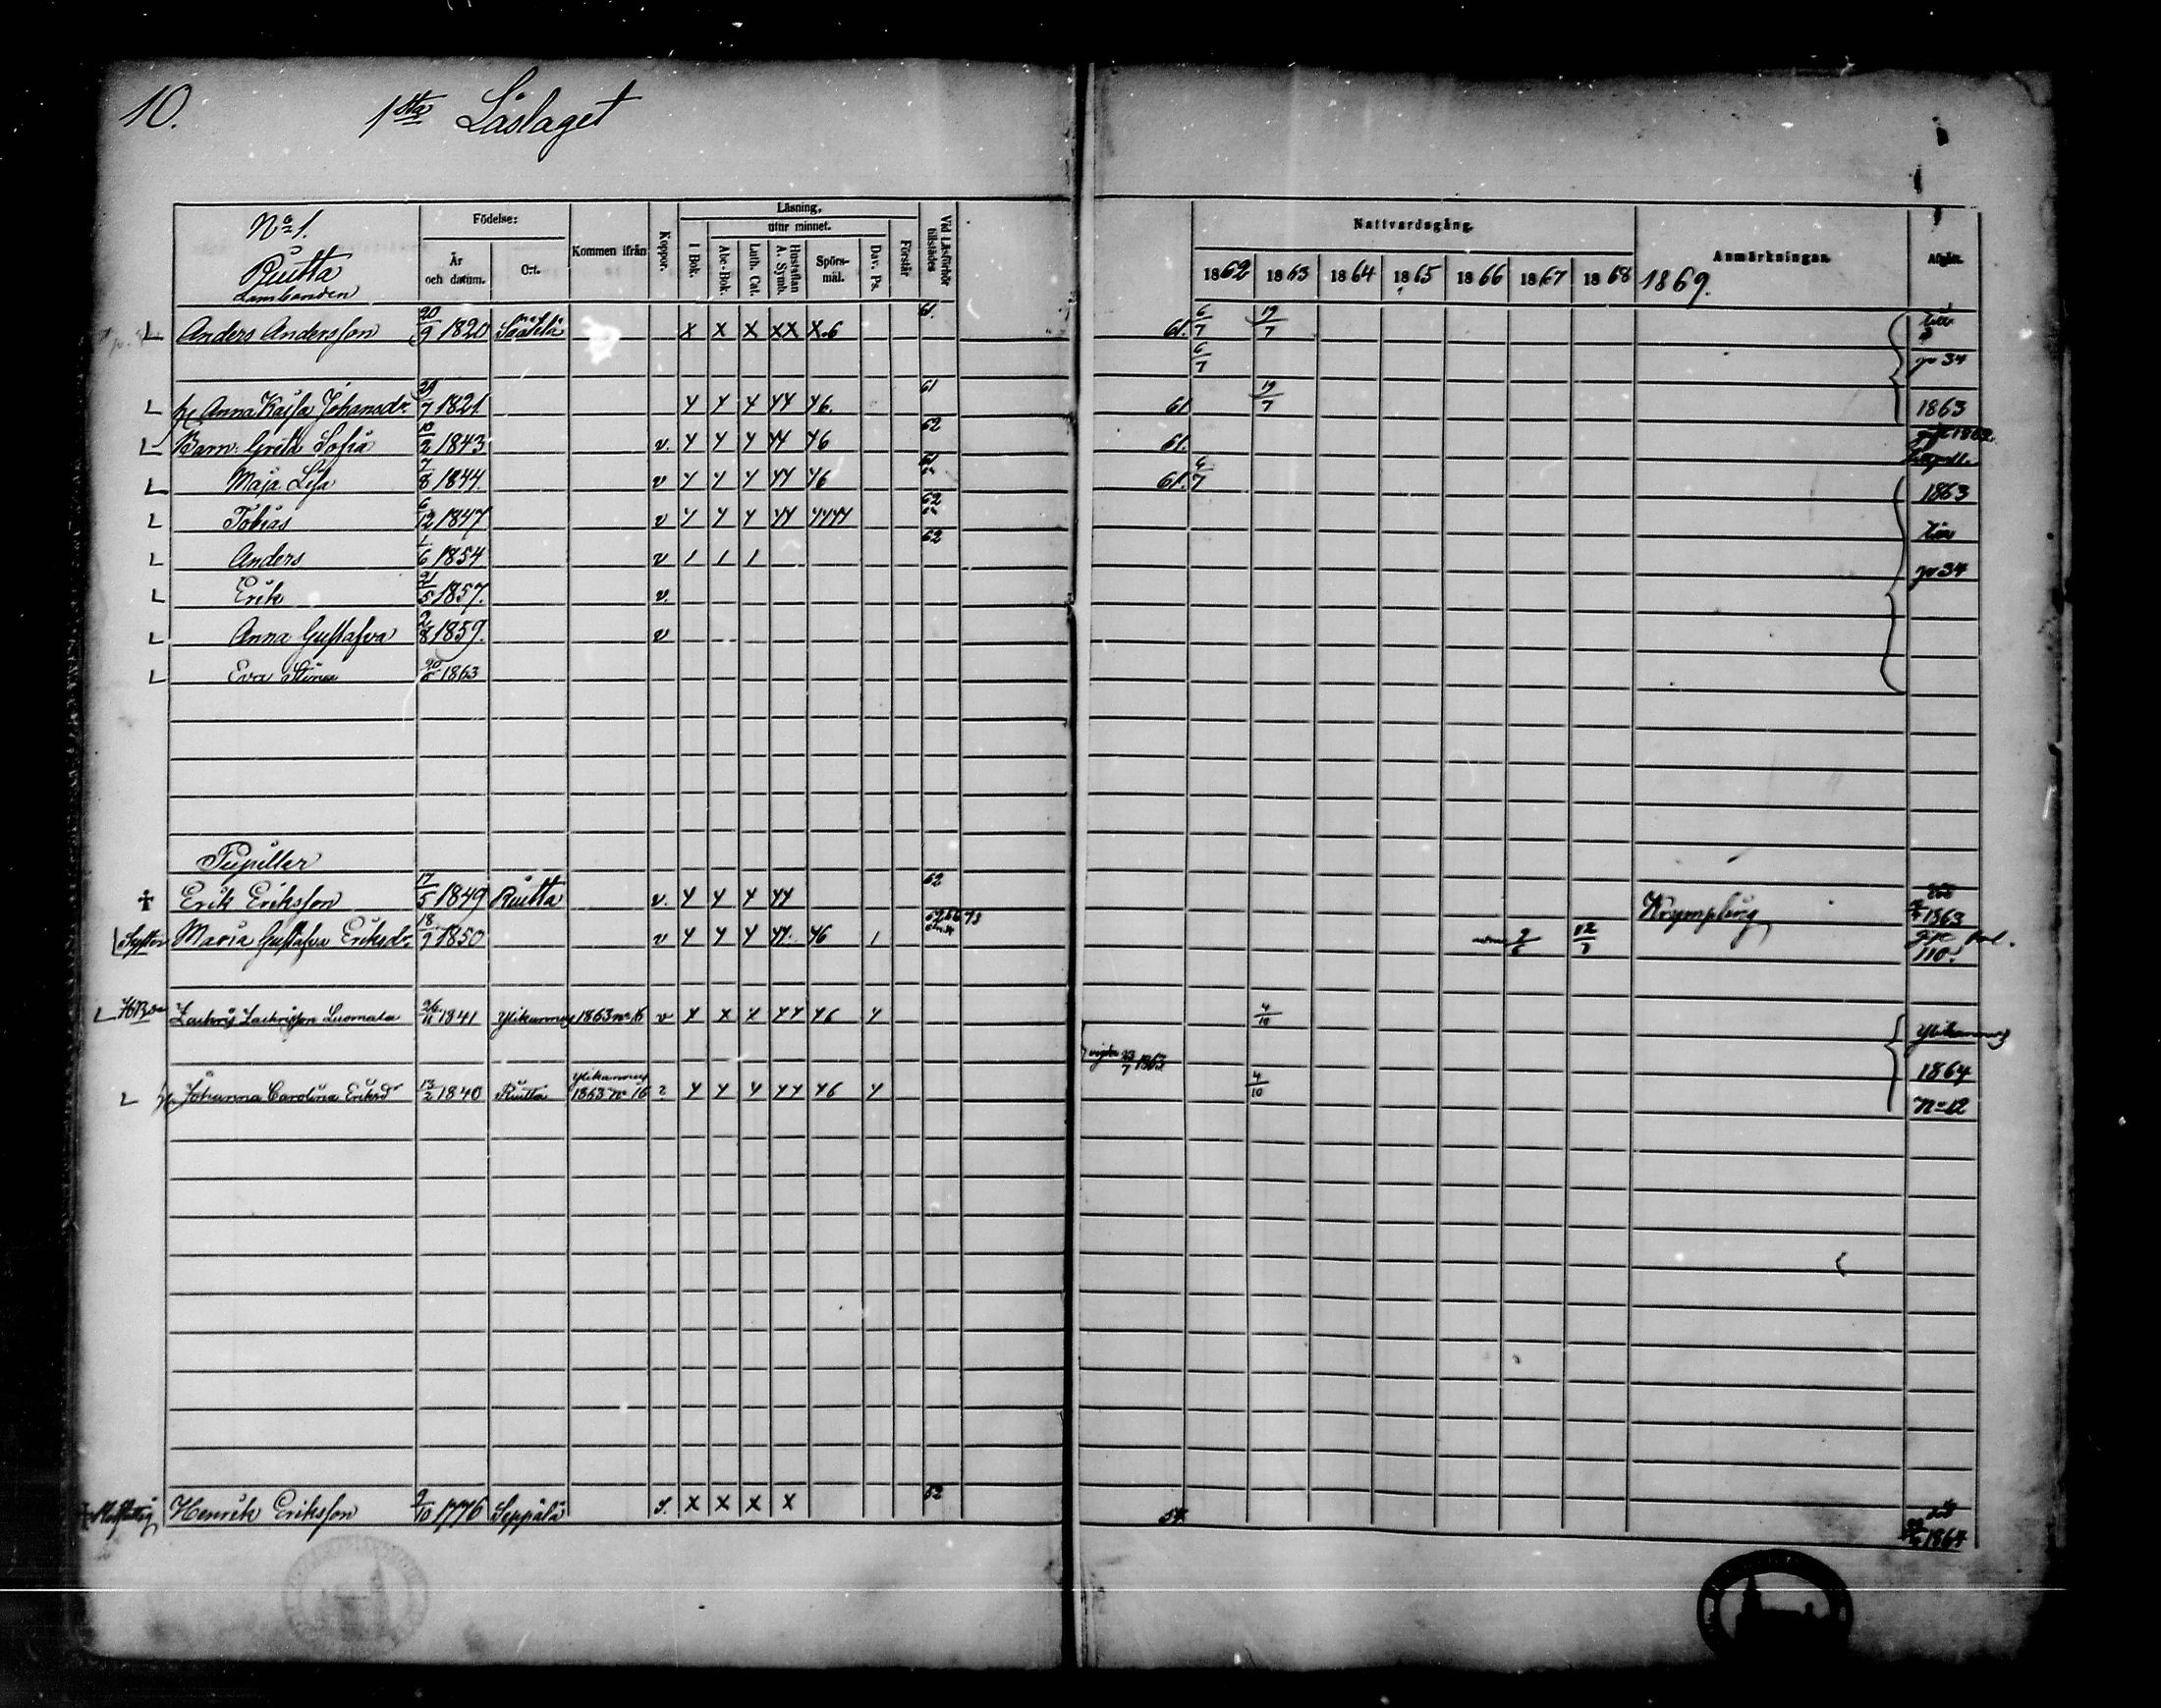 10. 1sta Läslaget
No 1.
Ruutta
Födelse:
År och datum.
Ort.
Kommen ifrån
Koppor.
Läsning,
utur minnet.
I Bok.
Abc-Bok.
Luth. Cat.
Hustaflan A. Symb.
Spörsmål.
Dav. Ps.
Förstår
Vid Läsförhör tillstädes
Nattvardsgång.
1862 1863 1864 1865 1866 1867 1868
Anmärkningar.
1869.
Afgått.
Anders Andersson 20/9 1820 x x x xx x.6 61. 61. 6/7 19/7
6/7 p 34
Anna Kajsa Johansdr 1821 y y y yy y6. 61 61 19/7 1863
Barn: Greta Sofia 10/2 1843 v. y y y yy y6 62 61.
Maja Lisa 7/8 1844 v y y y yy y6 61 61. 6/7 1863
Tobias 6/12 1847 v y y y yy yyyy 62
Anders 1/6 1854 v / / / 62 p 34
Erik 21/5 1857. v.
Anna Gustafva 2/8 1859. v
Eva Stina 1863
Pupiller
Erik Eriksson 17/5 1849 Ruutta v. y y y yy 62 Krympling 1863
Syster Maria Gustafva Eriksdr 18/9 1850 v y y y yy. y6 / 12/7 110.
Zachris Zachrisson Luomala 26/11 1841 Ylikannus 1863 no 16 v y x x yy y6 y 4/10 Ylikannus
vigda 23/7 1863 1864
Johanna Carolina Eriksdr 13/2 1840 Ruutta Ylikannus 1863 No 16 y y y yy y6 y 4/10 No 12
Henrik Eriksson 9/10 1776 Seppälä x x x x 62 54. död 1864